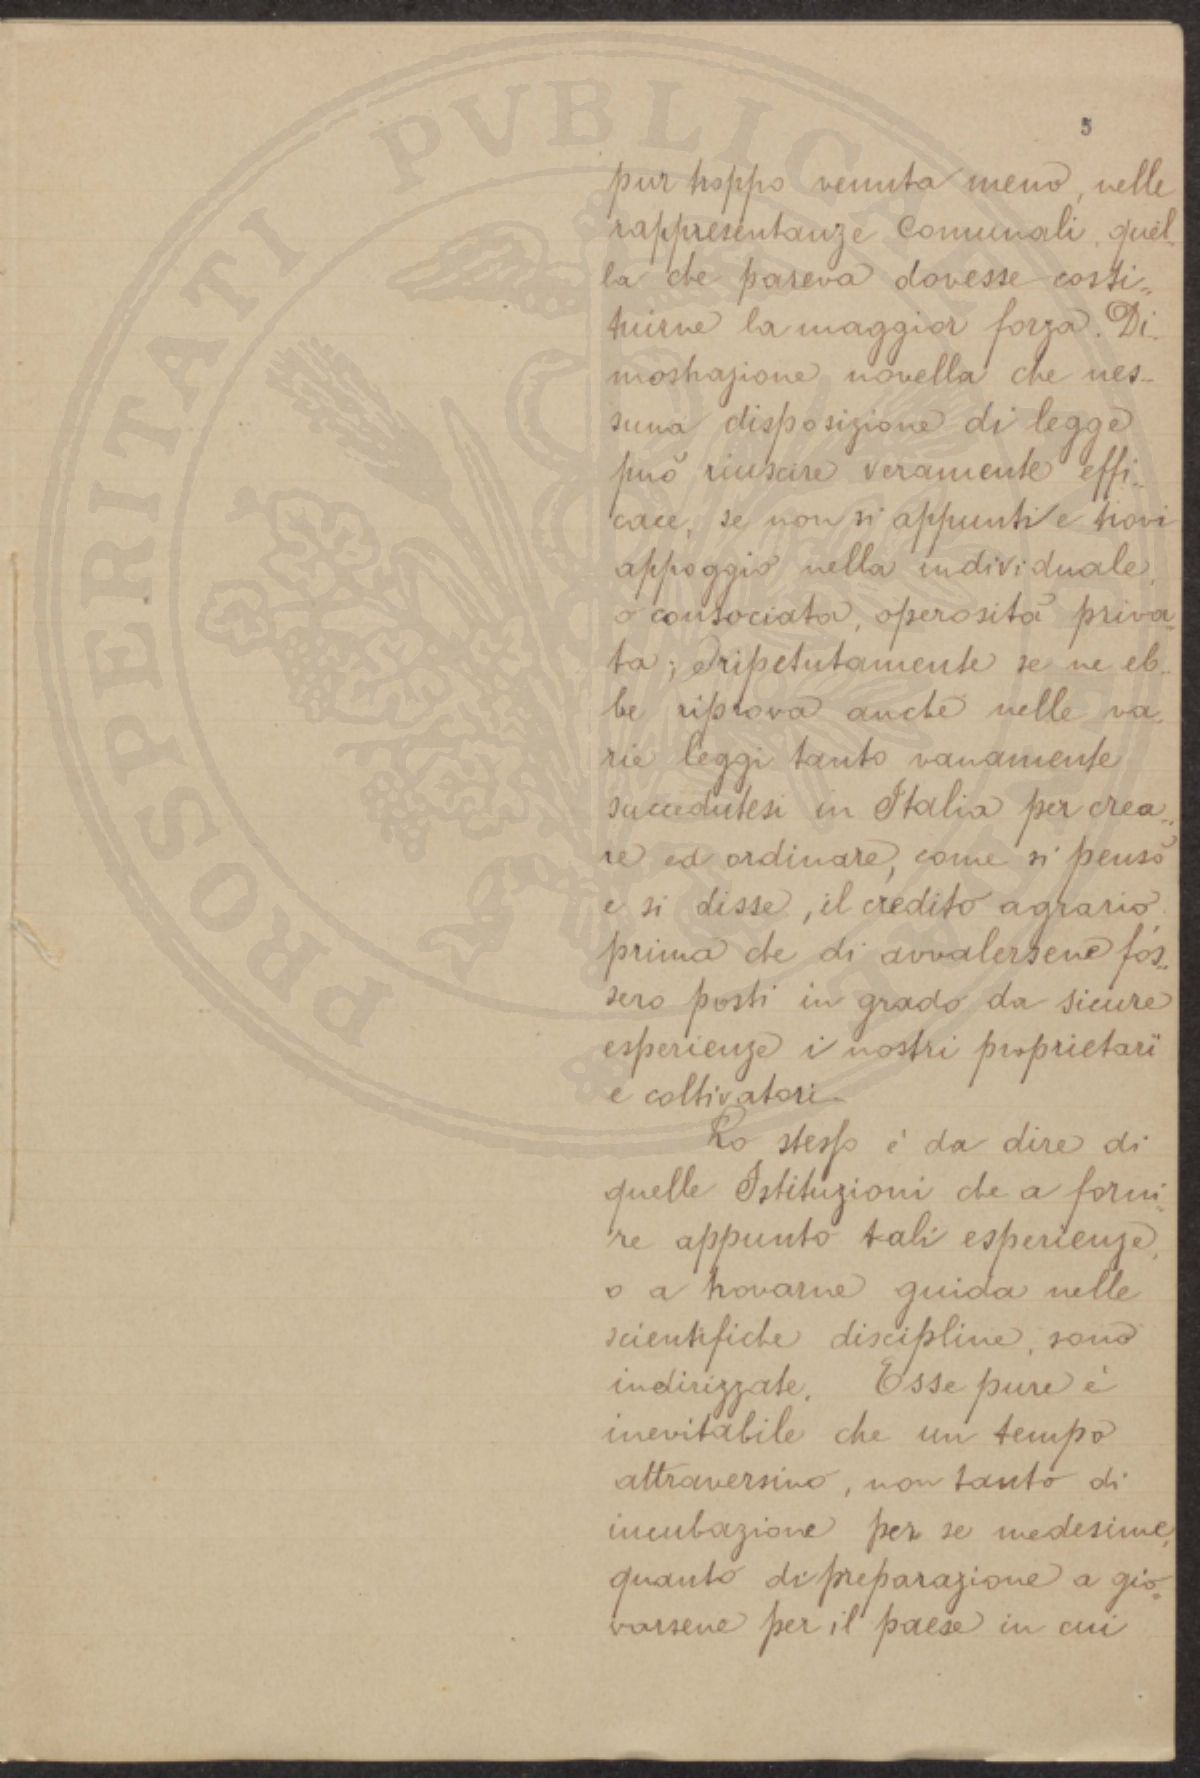 PROSPERITATI PVBLICAE
5
pur troppo venuta meno, nelle
rappresentanze Comunali, quel-
la che pareva dovesse costi-
tuirne la maggior forza. Di-
mostrazione novella che nes-
suna disposizione di legge
può riuscire veramente effi-
cace, se non si appunti e trovi
appoggio nella individuale,
o consociata, operosità priva-
ta; e ripetutamente se ne eb-
be riprova anche nelle va-
rie leggi tanto vanamente
succedutesi in Italia per crea-
re ed ordinare, come si pensò
e si disse, il credito agrario
prima che di avvalersene fos-
sero posti in grado da sicure
esperienze i nostri proprietarii
e coltivatori.
Lo stesso è da dire di
quelle Istituzioni che a forni-
re appunto tali esperienze,
o a trovarne guida nelle
scientifiche discipline, sono
indirizzate. Esse pure è
inevitabile che un tempo
attraversino, non tanto di
incubazione per se medesime,
quanto di preparazione a gio-
varsene per il paese in cui